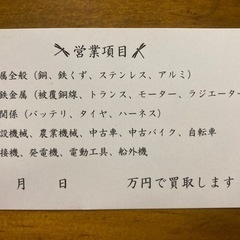 営業項目
属全般（銅、鉄くず、ステンレス、アルミ）
鉄金属（被覆銅線、トランス、モーター、ラジエーター
関係（バッテリ、タイヤ、ハーネス）
設機械、農業機械、中古車、中古バイク、自転車
接機、発電機、電動工具、船外機
月　日　　　万円で買取します